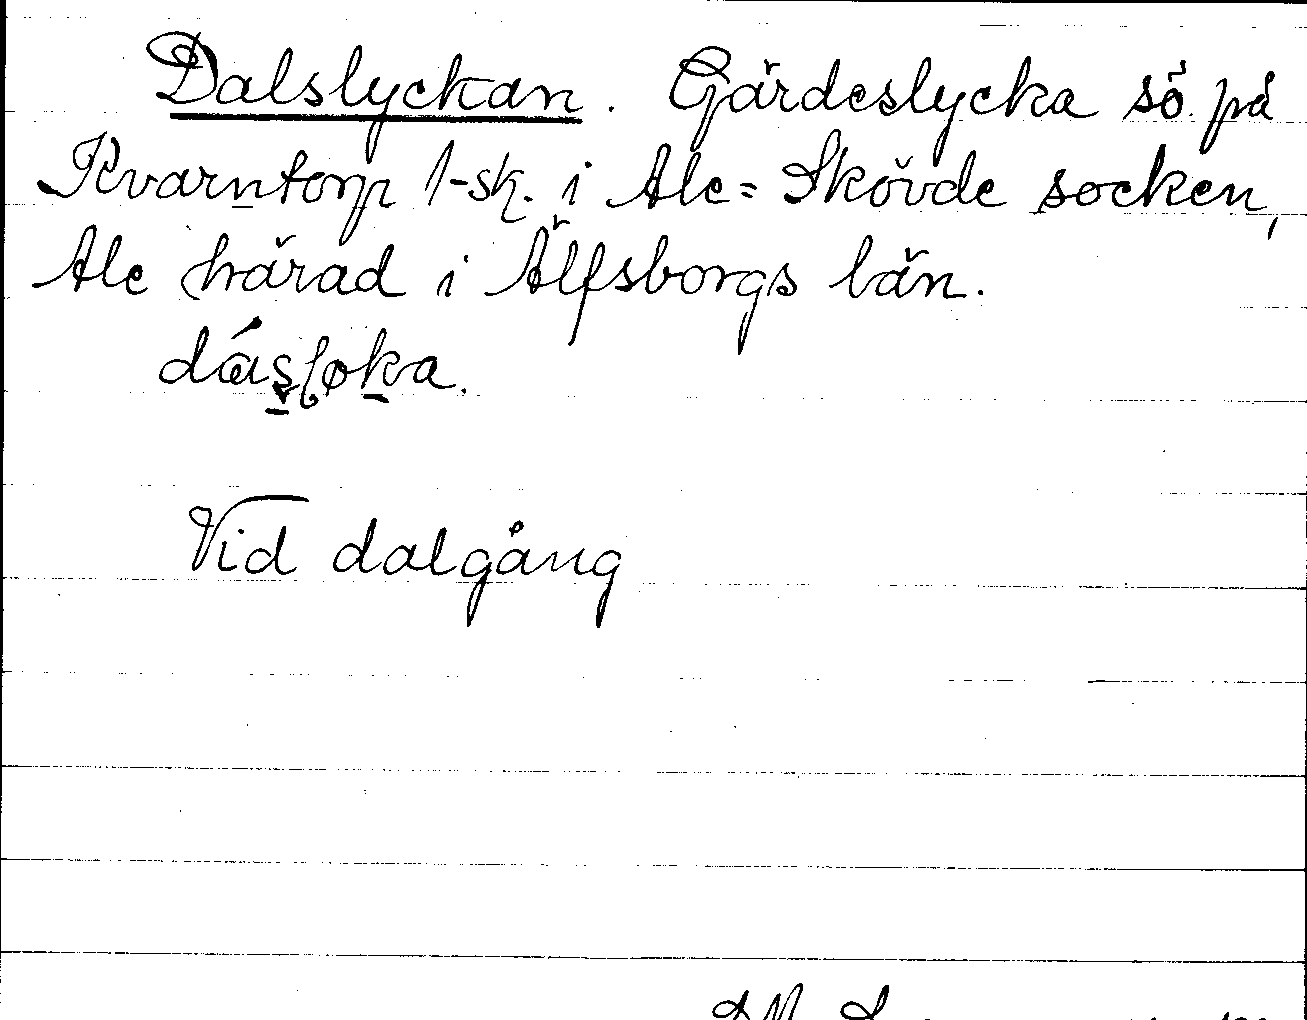 Dalslyckan. Gärdeslycka sö på
Kvarntorp 1-sk. i Ale-Skövde socken,
Ale härad i Älfsborgs län.
Vid dalgång